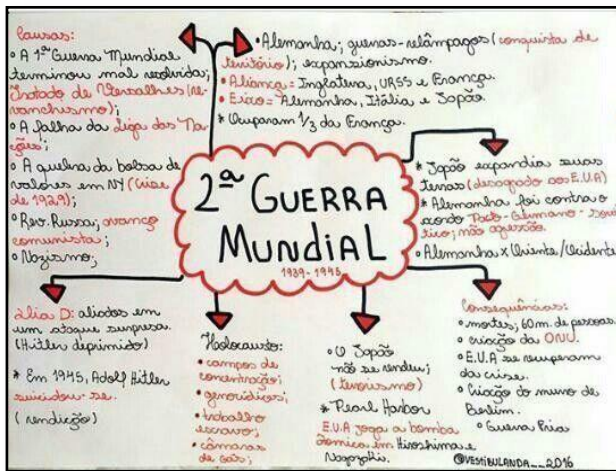 Causas:
• A 1ª Guerra Mundial
terminou mal resolvida;
Tratado de Versalhes (re-
vanchismo);
• A falha da Liga das Na-
ções;
• A quebra da bolsa de
valores em NY (Crise
de 1929);
• Rev. Russa; avanço
comunista;
• Nazismo;
• Alemanha; guerras-relâmpagos (conquista de
território); expansionismo.
• Aliança = Inglaterra, URSS e França.
• Eixo = Alemanha, Itália e Japão.
* Ocuparam 1/3 da França.
2ª GUERRA
MUNDIAL
1939-1945
* Japão expandia suas
terras (desagrado aos E.U.A)
* Alemanha foi contra o
acordo Pacto-Germano-Sovié
tico; não agressão.
• Alemanha x Oriente/Ocidente
Dia D: aliados em
um ataque surpresa.
(Hitler deprimido)
* Em 1945, Adolf Hitler
suicidou-se.
(rendição)
Holocausto:
• campos de
concentração;
• genocídios;
• trabalho
escravo;
• câmaras
de gás;
• O Japão
não se rendeu;
(terrorismo)
* Pearl Harbor
E.U.A joga a bomba
atômica em Hiroshima e
Nagazaki.
Consequências:
• mortes; 60m. de pessoas.
• criação da ONU.
• E.U.A se recuperam
da crise.
• Criação do muro de
Berlim.
• Guerra Fria
@VESTIBULANDA__2016